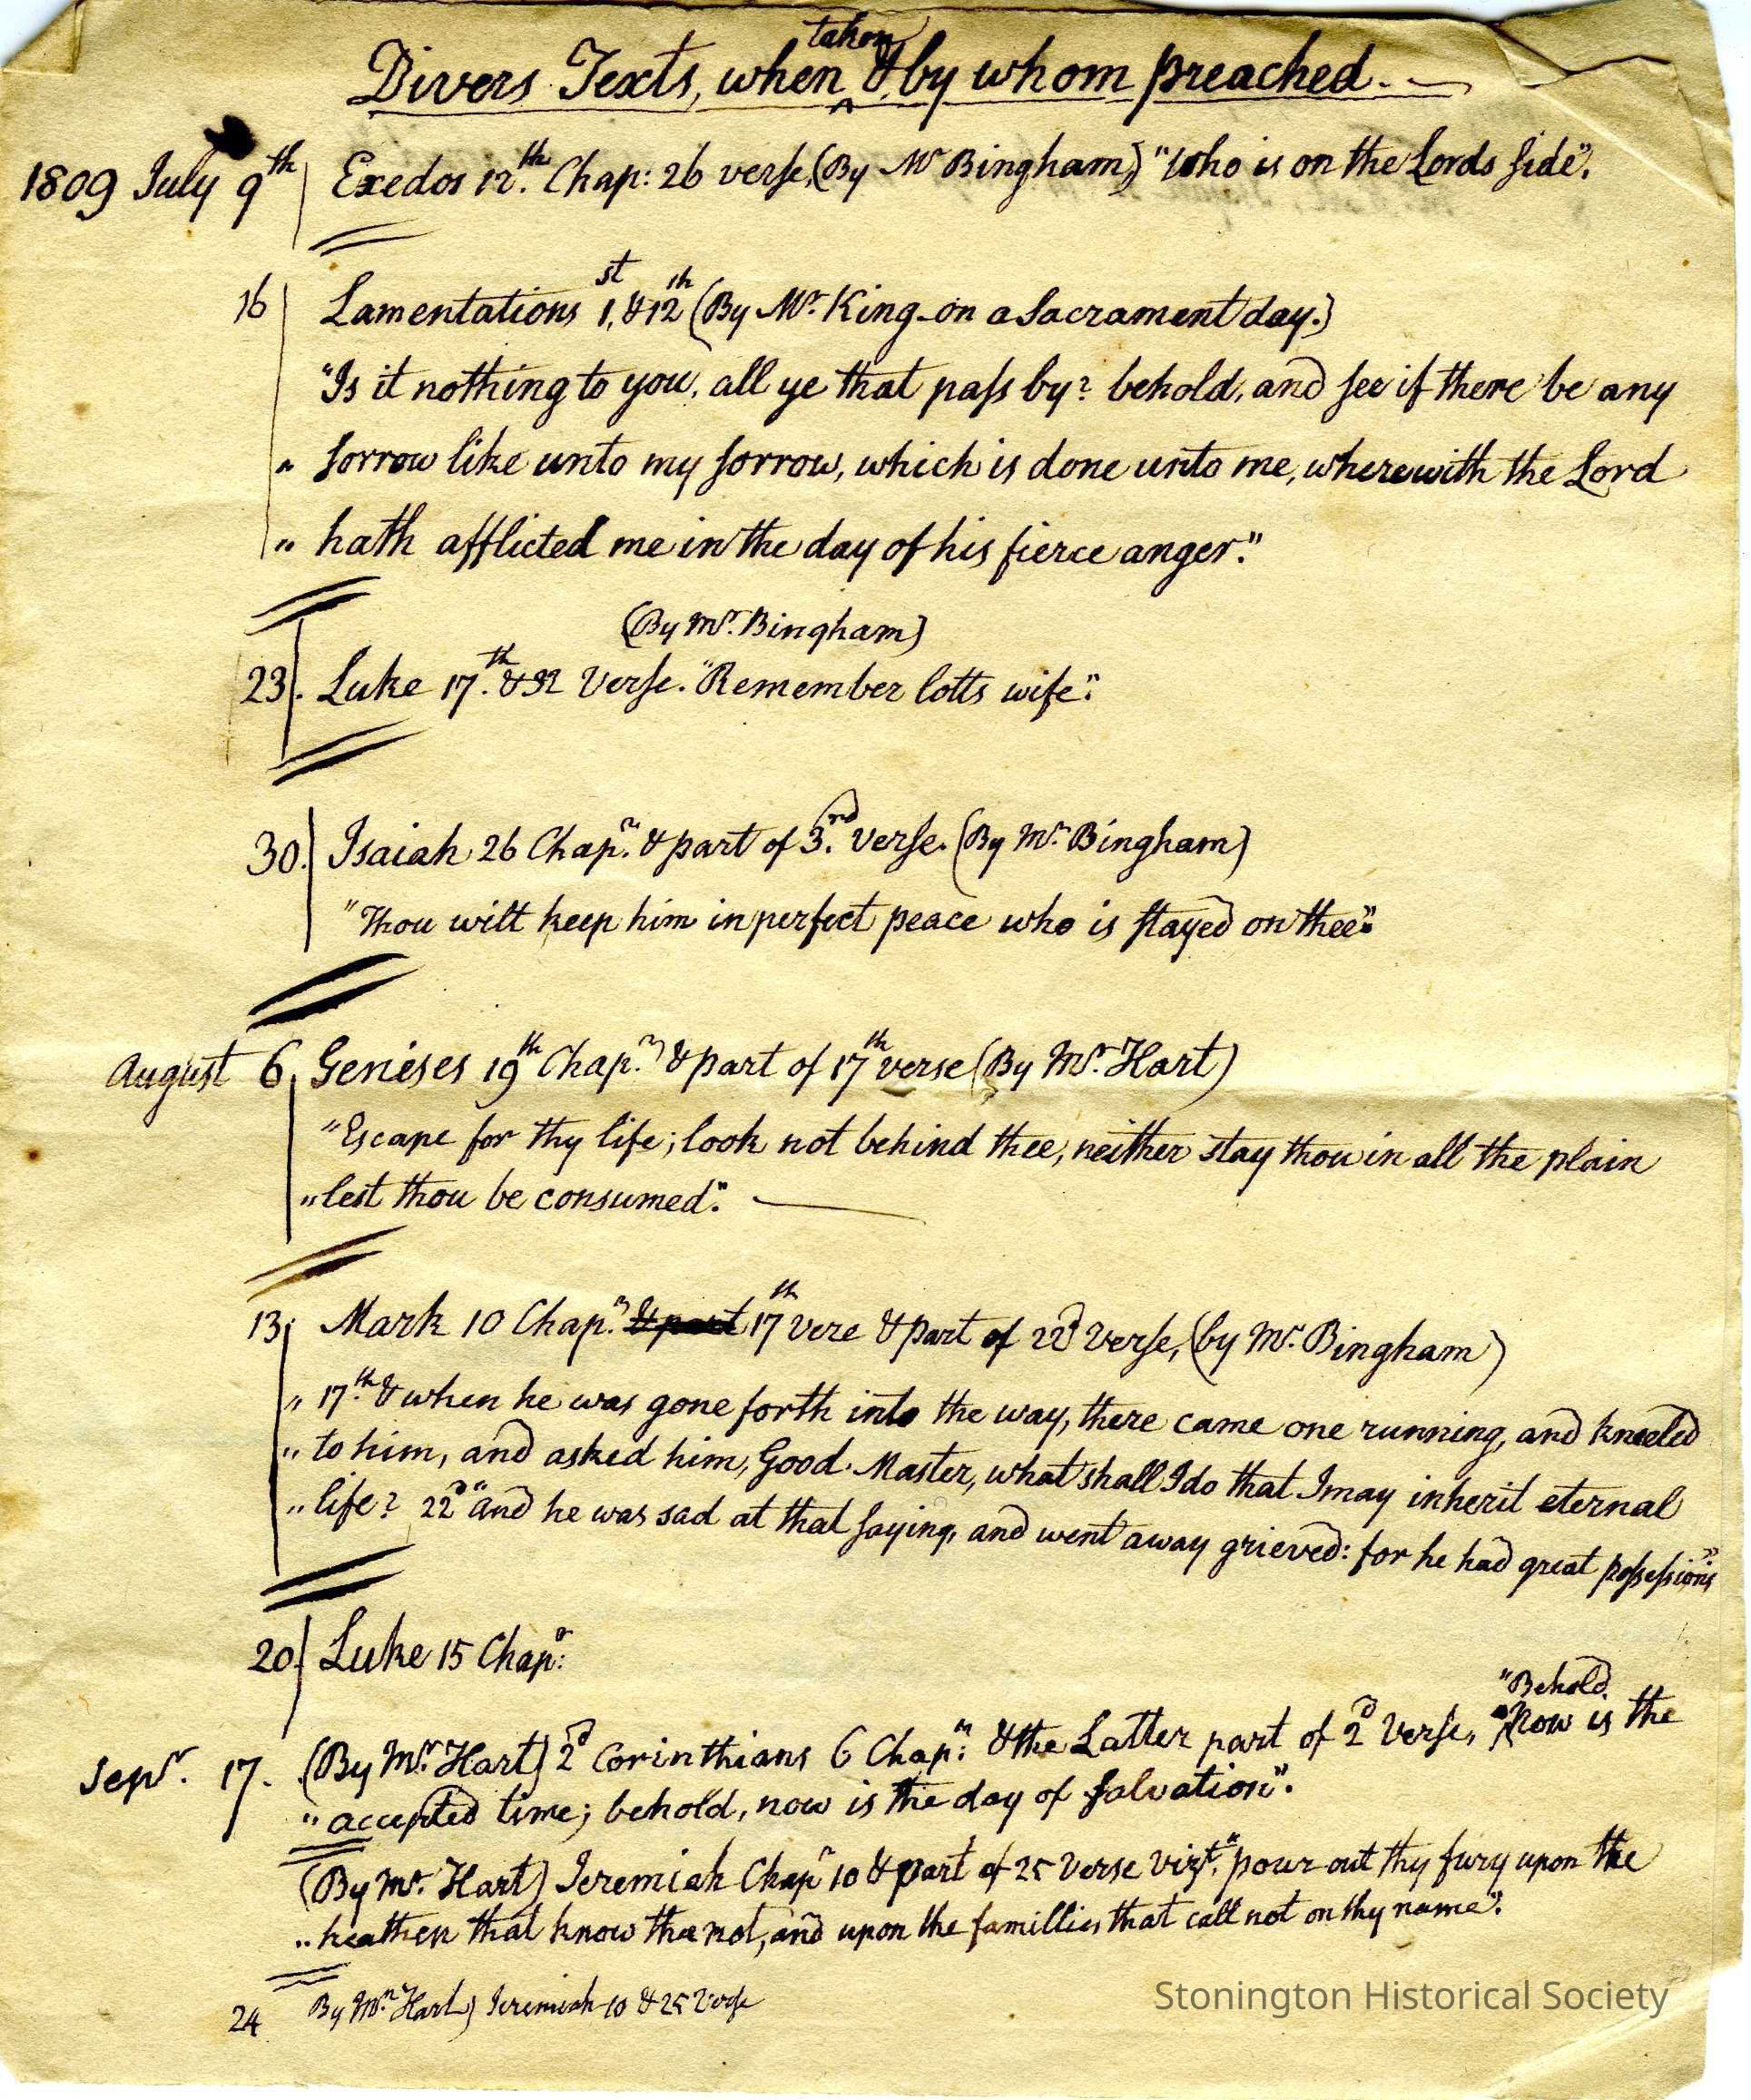 Divers Texts, when taken & by whom preached.
1809 July 9th Exedos 12th. Chap: 26 verse, (By Mr Bingham,) "Who is on the Lords side".
16 Lamentations 1st, & 12th (By Mr. King on a Sacrament day.)
"Is it nothing to you, all ye that pass by? behold, and see if there be any
" sorrow like unto my sorrow, which is done unto me, wherewith the Lord
" hath afflicted me in the day of his fierce anger."
(By Mr. Bingham)
23. Luke 17.th & 32 Verse. "Remember lotts wife".
30. Isaiah 26 Chapr. & part of 3.rd verse. (By Mr. Bingham)
"Thou wilt keep him in perfect peace who is stayed on thee".
August 6, Geneses 19th Chapr. & part of 17th verse (By Mr. Hart)
"Escape for thy life; look not behind thee, neither stay thou in all the plain
" lest thou be consumed".
13, Mark 10 Chapr. & part 17th vere & part of 22d Verse, (by Mr. Bingham)
" 17.th & when he was gone forth into the way, there came one running, and kneeled
" to him, and asked him, Good Master, what shall I do that I may inherit eternal
" life? 22d "and he was sad at that saying, and went away grieved: for he had great possessions"
20. Luke 15 Chapr:
Sepr. 17. (By Mr. Hart) 2d Corinthians 6 Chapr: & the Latter part of 2d Verse, "Behold, Now is the
" accepted time; behold, now is the day of salvation".
(By Mr. Hart) Jeremiah Chapr 10 & part of 25 Verse Vizt. "pour out thy fury upon the
" heathen that know thee not, and upon the famillies that call not on thy name".
24 By Mr. Hart) Jeremiah 10 & 25 Verse
Stonington Historical Society